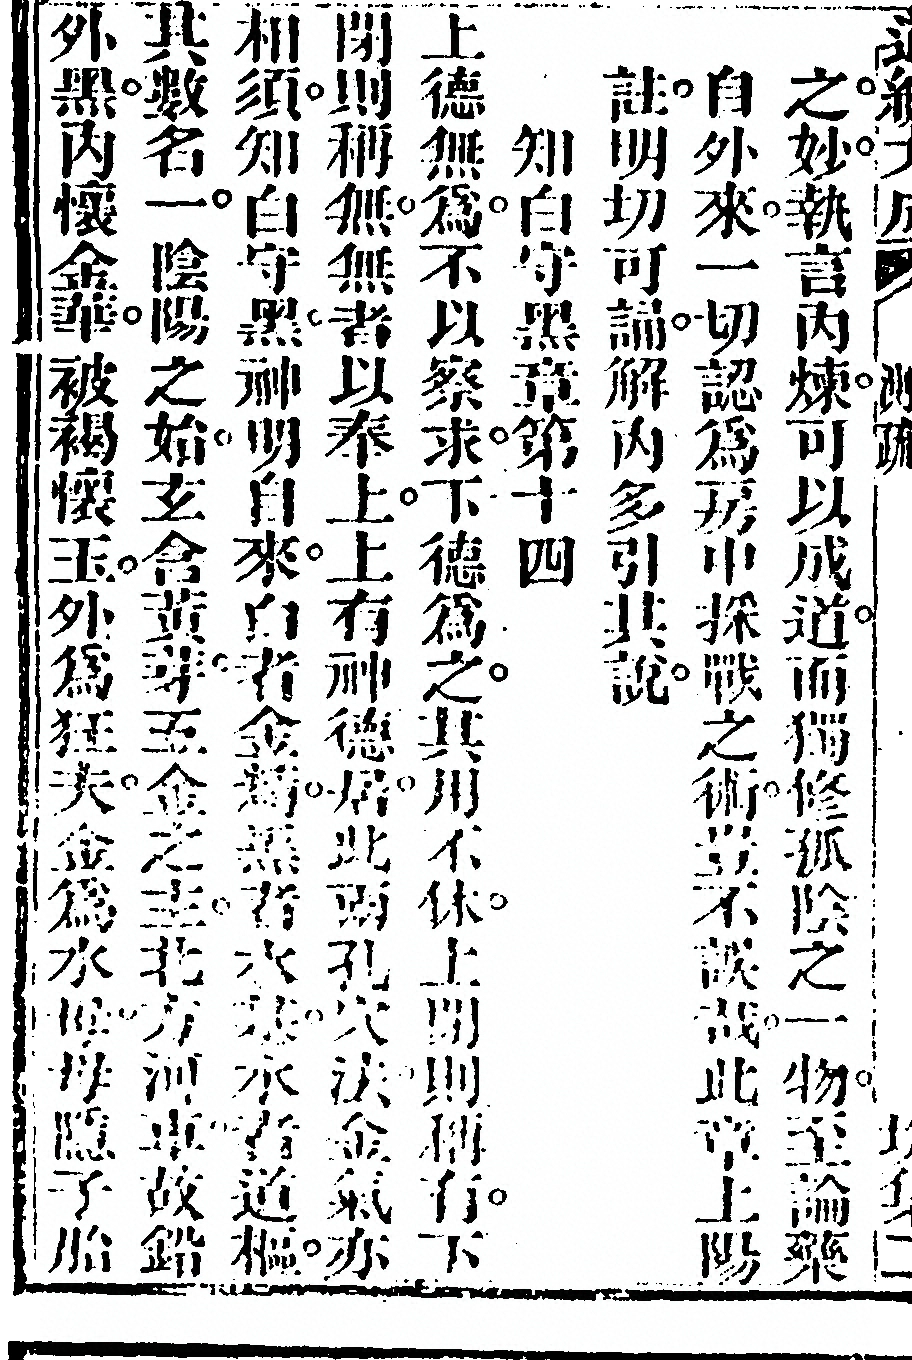 道統大成 測疏 坎集二
之妙執言内煉可以成道而獨修孤陰之一物至論藥
自外來一切認爲房中採戰之術豈不誤哉此章上陽
註明切可誦解内多引其說
知白守黑章第十四
上德無爲不以察求下德爲之其用不休上閉則稱有下
閉則稱無無者以奉上上有神德居此兩孔穴法金氣亦
相須知白守黑神明自來白者金精黑者水基水者道樞
其數名一陰陽之始玄含黃芽五金之主北方河車故鉛
外黑内懷金華被褐懷玉外爲狂夫金爲水母母隱子胎